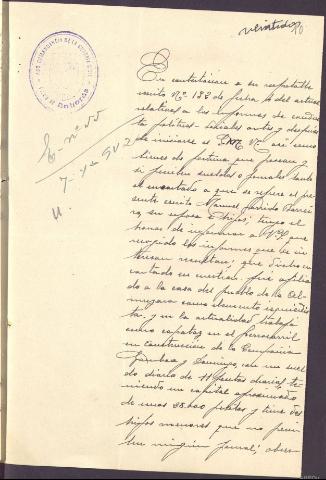 veintidos
En contestacion a su respetable
escrito Nº 122 de fecha 14 del actual
relativo a los informes de conducta
politico-sociales antes y despues
de iniciarse el G.M.N. así como
bienes de fortuna que posean y
si perciben sueldos o jornales tanto
el encartado a qui se refiere el pre-
sente escrito Manuel Garrido Barrei-
ro, su esposa e hijos; tengo el
honor de informar a V.S. que
recogido los informes que se in-
teresan resultan; que dicho en-
cartado en cuestion, fué afilia-
do a la casa del pueblo de la
como elemento izquierdis-
ta, y en la actualidad trabaja
como capataz en el ferrocarril
en construccion de la Compañia
y Domingo, con un suel-
do diario de 11 pesetas diarias, te-
niendo un capital aproximado
de unas 25.000 pesetas y tiene dos
hijos menores que no perci-
ben ningún jornal;